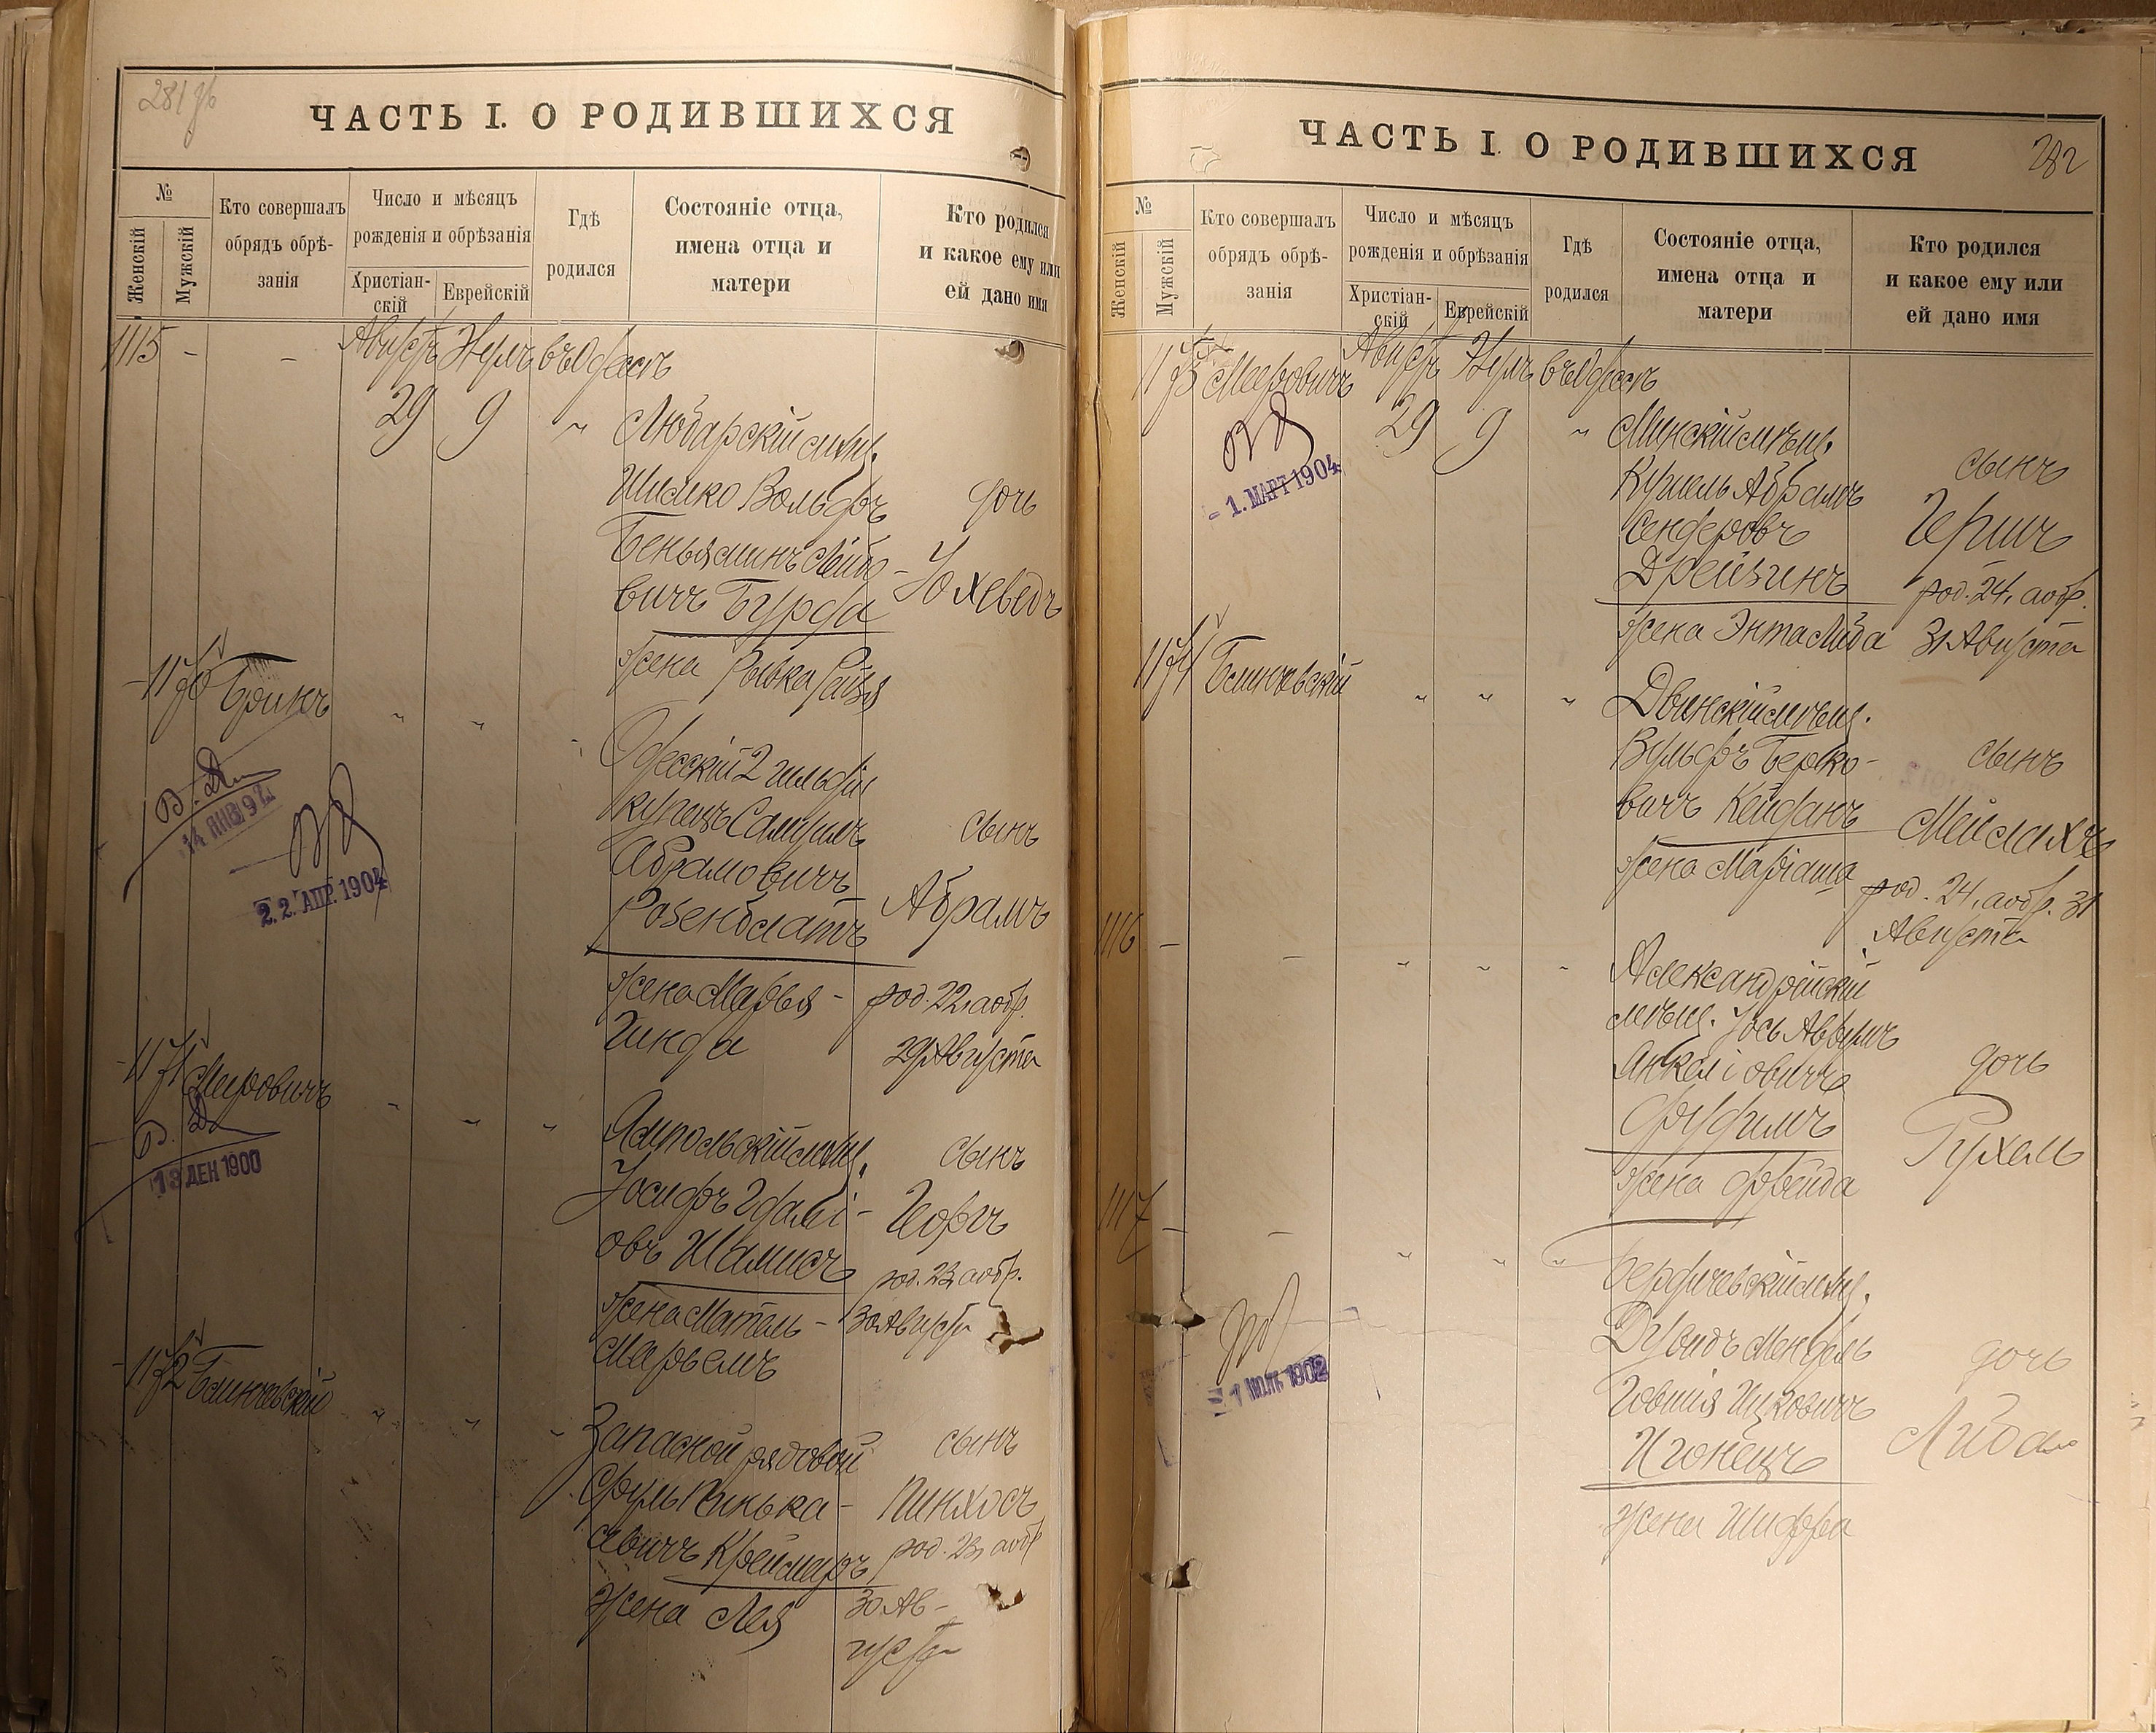 ЧАСТЬ I. О РОДИВШИХСЯ
№
Женскій
Мужскій
Кто совершалъ
обрядъ обрѣ-
занія
Число и мѣсяцъ
рожденія и обрѣзанія
Христіан-
скій
Еврейскій
Гдѣ
родился
Состояніе отца,
имена отца и
матери
Кто родился
и какое ему или
ей дано имя
1115 - - Августъ Элулъ въ Одессѣ
29 9 "
Любарскій мѣщ.
Шимко Вольфъ
Беньяминъ Лейбо-
вичъ Бурда
жена Рывка Рейзя
дочь
Іохеведъ
1170 Бринъ " " "
14 ЯНВ 9
22. АПР. 1904
Одесскій 2 гильдіи
купецъ Самуилъ
Абрамовичъ
Розенблатъ
жена Марья-
Гинда
сынъ
Абрамъ
род. 22, а обр.
29 Августа
1171 Меировичъ " " "
13 ДЕК 1900
Ямпольскій мѣщ.
Іосифъ Гдалі-
овъ Шамисъ
жена Матель-
Марьемъ
сынъ
Герчъ
род. 23 а обр.
30 Августа
1172 Блинчевскій " " "
Запасной рядовой
Сруль Пинька-
севичъ Креймеръ
жена Лея
сынъ
Пинхосъ
род. 23, а обр.
30 Ав-
густа
ЧАСТЬ I. О РОДИВШИХСЯ
282
№
Женскій
Мужскій
Кто совершалъ
обрядъ обрѣ-
занія
Число и мѣсяцъ
рожденія и обрѣзанія
Христіан-
скій
Еврейскій
Гдѣ
родился
Состояніе отца,
имена отца и
матери
Кто родился
и какое ему или
ей дано имя
1173 Меировичъ Августъ Элулъ въ Одессѣ
29 9 "
- 1. МАРТ 1904
Минскій мѣщ.
Кушель Абрамъ
Сендеровъ
Дрейзинъ
жена Энта Либа
сынъ
Гершъ
род. 24, а обр.
31 Августа
1174 Блинчевскій " " "
Двинскій мѣщ.
Вульфъ Берко-
вичъ Кейданъ
жена Маріаша
сынъ
Мейлахъ
род. 24, а обр. 31
Августа
1116 - - " " "
Александрійскій
мѣщ. Іось Аврумъ
жена Фрейда
дочь
Рухель
1117 - - " " "
Бердичевскій мѣщ.
Дувидъ Мендель
Ицковичъ
жена Шифра
дочь
Либа